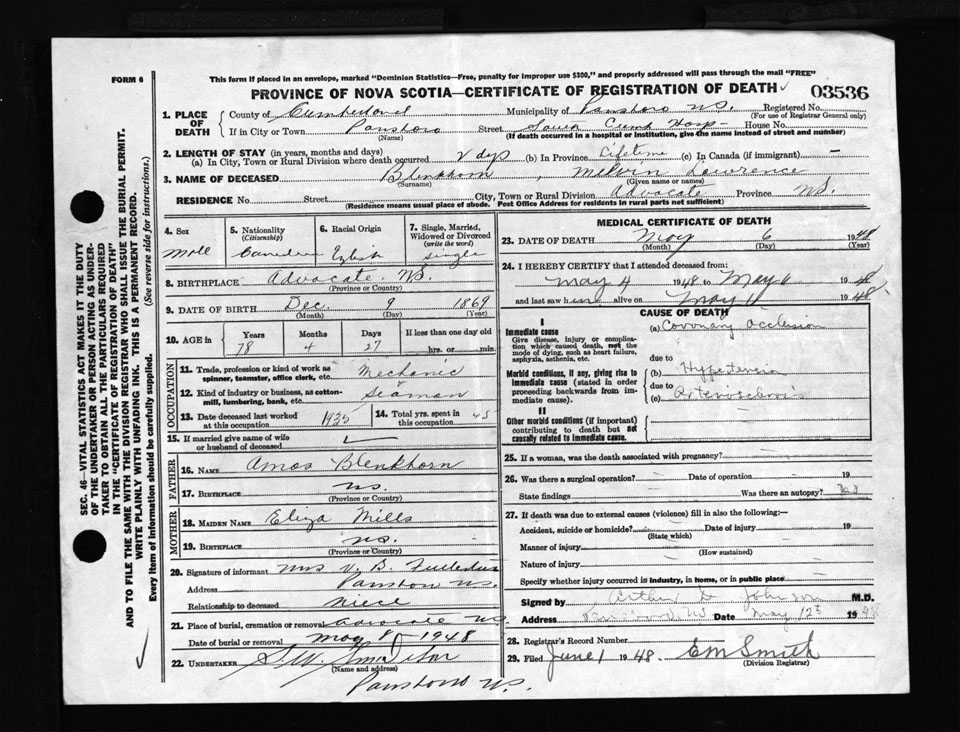 This form if placed in an envelope, marked "Dominion Statistics—Free, penalty for improper use $300," and properly addressed will pass through the mail "FREE"
FORM 6
PROVINCE OF NOVA SCOTIA—CERTIFICATE OF REGISTRATION OF DEATH 03536
1. PLACE OF DEATH
County of Cumberland Municipality of Parrsboro N.S. Registered No.
(For use of Registrar General only)
If in City or Town Parrsboro Street South Cumb Hosp House No.
(Name) (If death occurred in a hospital or institution, give the name instead of street and number)
2. LENGTH OF STAY (in years, months and days)
(a) In City, Town or Rural Division where death occurred 2 dys (b) In Province Lifetime (c) In Canada (if immigrant) —
3. NAME OF DECEASED Blenkhorn, Melvin Lawrence
(Surname) (Given name or names)
RESIDENCE No. Street City, Town or Rural Division Advocate Province N.S.
(Residence means usual place of abode. Post Office Address for residents in rural parts not sufficient)
4. Sex
Male
5. Nationality (Citizenship)
Canadian
6. Racial Origin
English
7. Single, Married, Widowed or Divorced (write the word)
Single
8. BIRTHPLACE Advocate, N.S.
(Province or Country)
9. DATE OF BIRTH Dec. 9 1869
(Month) (Day) (Year)
10. AGE in Years Months Days If less than one day old
78 4 27 hrs. or min.
OCCUPATION
11. Trade, profession or kind of work as spinner, teamster, office clerk, etc. Mechanic
12. Kind of industry or business, as cotton-mill, lumbering, bank, etc. Seaman
13. Date deceased last worked at this occupation 1935
14. Total yrs. spent in this occupation 45
15. If married give name of wife or husband of deceased
FATHER
16. NAME Amos Blenkhorn
17. BIRTHPLACE N.S.
(Province or Country)
MOTHER
18. MAIDEN NAME Eliza Mills
19. BIRTHPLACE N.S.
(Province or Country)
20. Signature of informant Mrs V. B.
Address Parrsboro N.S.
Relationship to deceased Niece
21. Place of burial, cremation or removal Advocate N.S.
Date of burial or removal May 8 1948
22. UNDERTAKER
(Name and address)
Parrsboro N.S.
MEDICAL CERTIFICATE OF DEATH
23. DATE OF DEATH May 6 1948
(Month) (Day) (Year)
24. I HEREBY CERTIFY that I attended deceased from:
May 4 1948 to May 6 1948
and last saw him alive on May 1948
CAUSE OF DEATH
I
Immediate cause
Give disease, injury or complication which caused death, not the mode of dying, such as heart failure, asphyxia, asthenia, etc.
(a) Coronary occlusion
due to
Morbid conditions, if any, giving rise to immediate cause (stated in order proceeding backwards from immediate cause).
(b) Hypertension
due to
(c) Arteriosclerosis
II
Other morbid conditions (if important) contributing to death but not causally related to immediate cause.
25. If a woman, was the death associated with pregnancy?
26. Was there a surgical operation? Date of operation 19
State findings Was there an autopsy?
27. If death was due to external causes (violence) fill in also the following:—
Accident, suicide or homicide? Date of injury 19
(State which)
Manner of injury
(How sustained)
Nature of injury
Specify whether injury occurred in industry, in home, or in public place
Signed by Arthur D Johnson M.D.
Address Date May 12th 1948
28. Registrar's Record Number
29. Filed June 1 1948. E M Smith
(Division Registrar)
SEC. 46—VITAL STATISTICS ACT MAKES IT THE DUTY
OF THE UNDERTAKER OR PERSON ACTING AS UNDER-
TAKER TO OBTAIN ALL THE PARTICULARS REQUIRED
IN THE "CERTIFICATE OF REGISTRATION OF DEATH"
AND TO FILE THE SAME WITH THE DIVISION REGISTRAR WHO SHALL ISSUE THE BURIAL PERMIT.
WRITE PLAINLY WITH UNFADING INK. THIS IS A PERMANENT RECORD.
Every item of information should be carefully supplied. (See reverse side for instructions.)